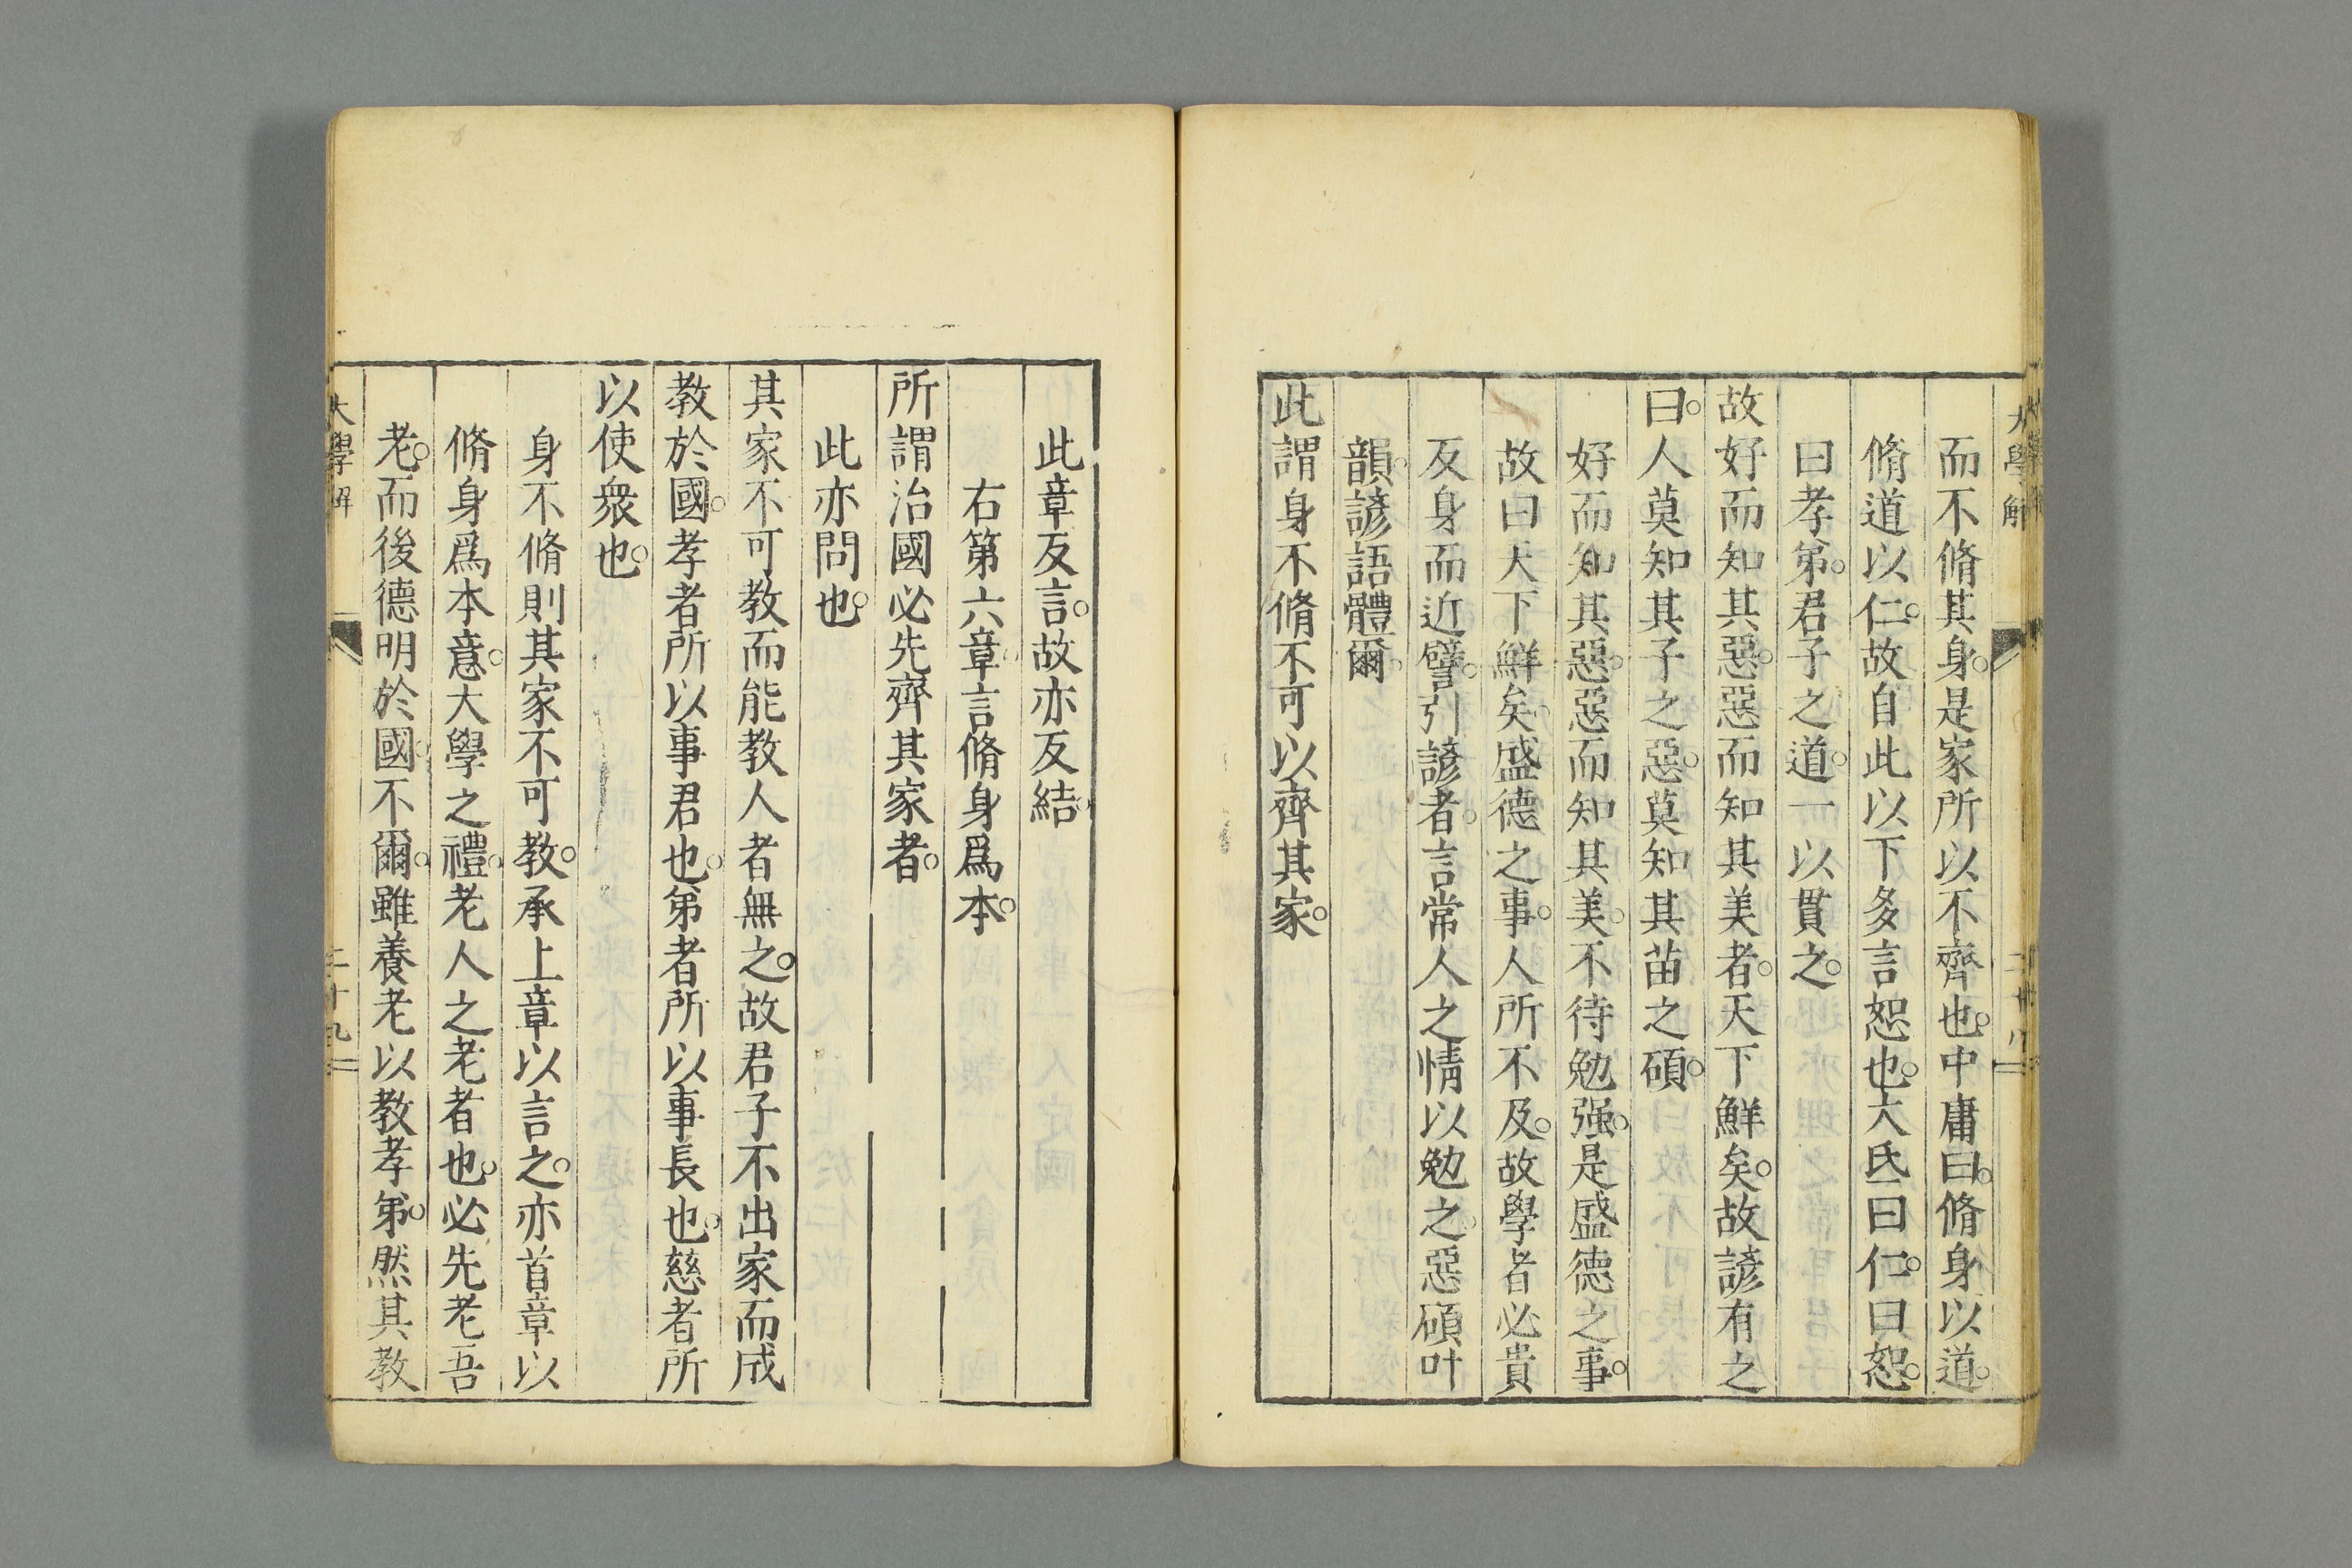 大學解
二十八
而不脩其身。是家所以不齊也。中庸曰。脩身以道。
脩道以仁。故自此以下多言恕也。大氐曰仁。曰恕。
曰孝弟。君子之道。一以貫之。
故好而知其惡。惡而知其美者。天下鮮矣。故諺有之
曰。人莫知其子之惡。莫知其苗之碩。
好而知其惡。惡而知其美。不待勉强。是盛德之事。
故曰天下鮮矣。盛德之事。人所不及。故學者必貴
反身而近譬。引諺者。言常人之情以勉之。惡碩叶
韻。諺語體爾。
此謂身不脩不可以齊其家。
此章反言。故亦反結。
右第六章。言脩身爲本。
所謂治國必先齊其家者。
此亦問也。
其家不可教而能教人者無之。故君子不出家而成
教於國。孝者所以事君也。弟者所以事長也。慈者所
以使衆也。
身不脩則其家不可教。承上章以言之。亦首章以
脩身爲本意。大學之禮。老人之老者也。必先老吾
老。而後德明於國。不爾。雖養老以教孝弟。然其教
大學解
二十九